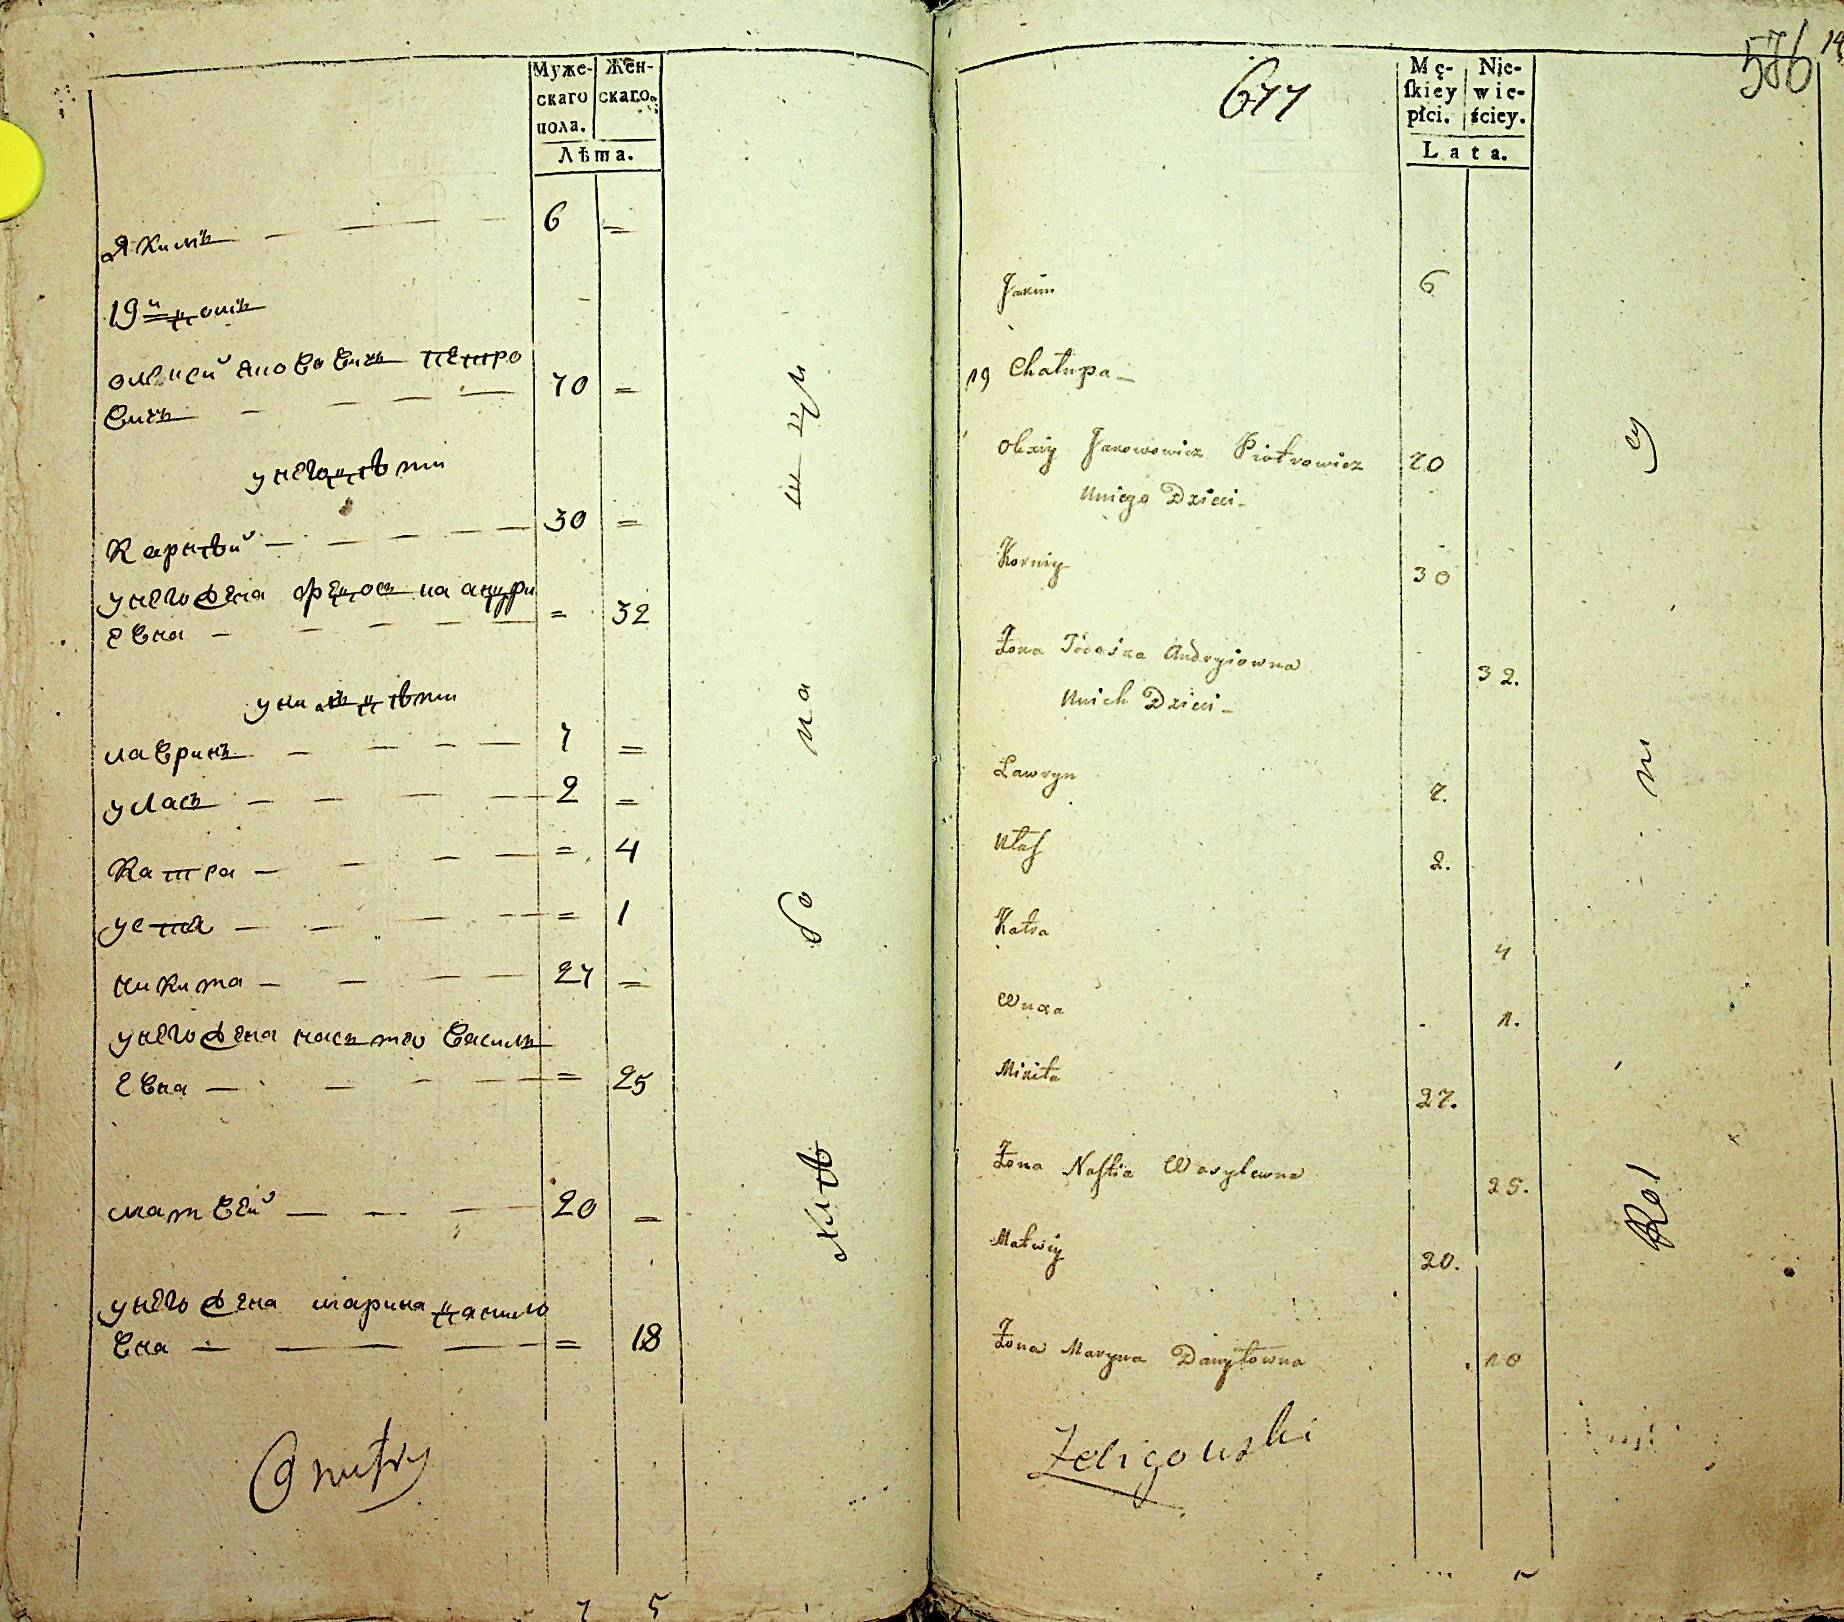 Муже-
скаго
пола.
Жен-
скаго.
Лѣта.
Якимъ 6 =
19й домъ
олексей яковевичъ петро
вичъ 70 =
у него дѣти
Карнѣй 30 =
у него жена федоська андри
евна = 32
у нихъ дѣти
лавринъ 7 =
уласъ 2 =
Катра = 4
устя = 1
никита 27 =
у него жена настя василь
евна = 25
матвей 20 =
у него жена марина данило
вна = 18
Dmitry
7 5
677
576
Mę-
ſkiey
płci.
Nie-
wie-
ściey.
Lata.
Jakim 6
19 Chałupa
Olexiy Jakowowicz Piotrowicz 70
U niego Dzieci
Korniy 30
Żona Fedoska Andryiowna 32.
U nich Dzieci
Ławryn 7.
Ułaſ 2.
Katra 4
1.
Mikita 27.
Żona Naſtia Wasylewna 25.
Matwiy 20.
Żona Maryna Daniłowna 18
Zeligowski